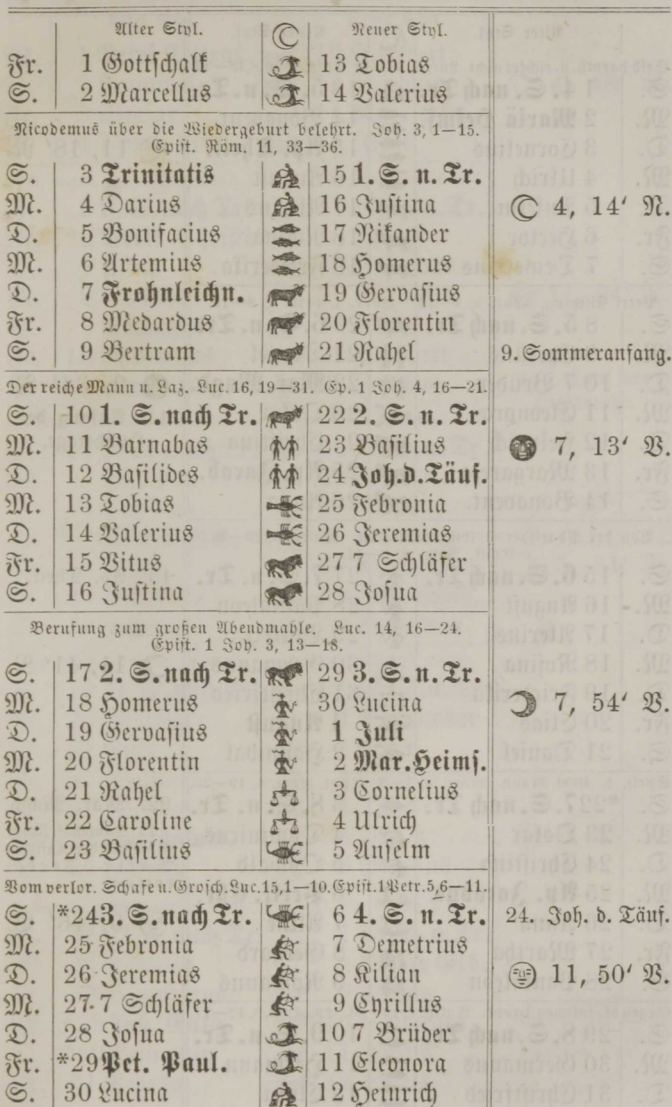 Alter Styl. Neuer Styl.
Fr. 1 Gottschalk 13 Tobias
S. 2 Marcellus 14 Valerius
Nicodemus über die Wiedergeburt belehrt. Joh. 3, 1—15.
Epist. Röm. 11, 33—36.
S. 3 Trinitatis 15 1. S. n. Tr.
M. 4 Darius 16 Justina ☾ 4, 14′ N.
D. 5 Bonifacius 17 Nikander
M. 6 Artemius 18 Homerus
D. 7 Frohnleichn. 19 Gervasius
Fr. 8 Medardus 20 Florentin
S. 9 Bertram 21 Rahel 9. Sommeranfang.
Der reiche Mann u. Laz. Luc. 16, 19—31. Ep. 1 Joh. 4, 16—21.
S. 10 1. S. nach Tr. 22 2. S. n. Tr.
M. 11 Barnabas 23 Basilius 7, 13′ V.
D. 12 Basilides 24 Joh. d. Täuf.
M. 13 Tobias 25 Febronia
D. 14 Valerius 26 Jeremias
Fr. 15 Vitus 27 7 Schläfer
S. 16 Justina 28 Josua
Berufung zum großen Abendmahle. Luc. 14, 16—24.
Epist. 1 Joh. 3, 13—18.
S. 17 2. S. nach Tr. 29 3. S. n. Tr.
M. 18 Homerus 30 Lucina 7, 54′ V.
D. 19 Gervasius 1 Juli
M. 20 Florentin 2 Mar. Heims.
D. 21 Rahel 3 Cornelius
Fr. 22 Caroline 4 Ulrich
S. 23 Basilius 5 Anselm
Vom verlor. Schafe u. Grosch. Luc. 15, 1—10. Epist. 1 Petr. 5, 6—11.
S. *24 3. S. nach Tr. 6 4. S. n. Tr. 24. Joh. d. Täuf.
M. 25 Febronia 7 Demetrius
D. 26 Jeremias 8 Kilian 11, 50′ V.
M. 27 7 Schläfer 9 Cyrillus
D. 28 Josua 10 7 Brüder
Fr. *29 Pet. Paul. 11 Eleonora
S. 30 Lucina 12 Heinrich